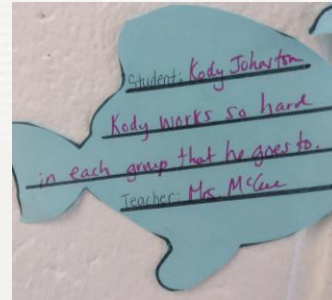 Student: Kody Johnston
Kody works so hard
in each group that he goes to.
Teacher: Mrs. McCue